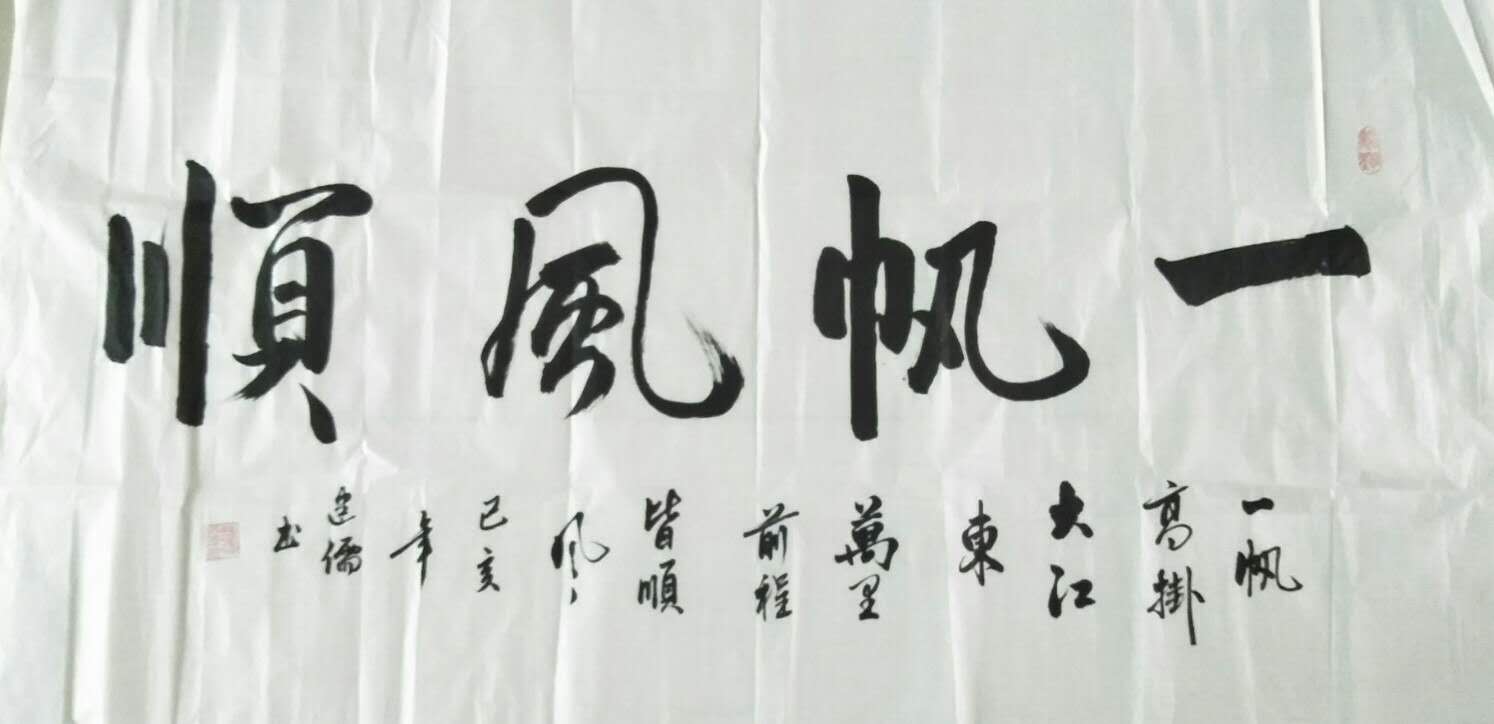 一帆風順
一帆
高掛
大江
東
萬里
前程
皆順
風
己亥
年
儒
书